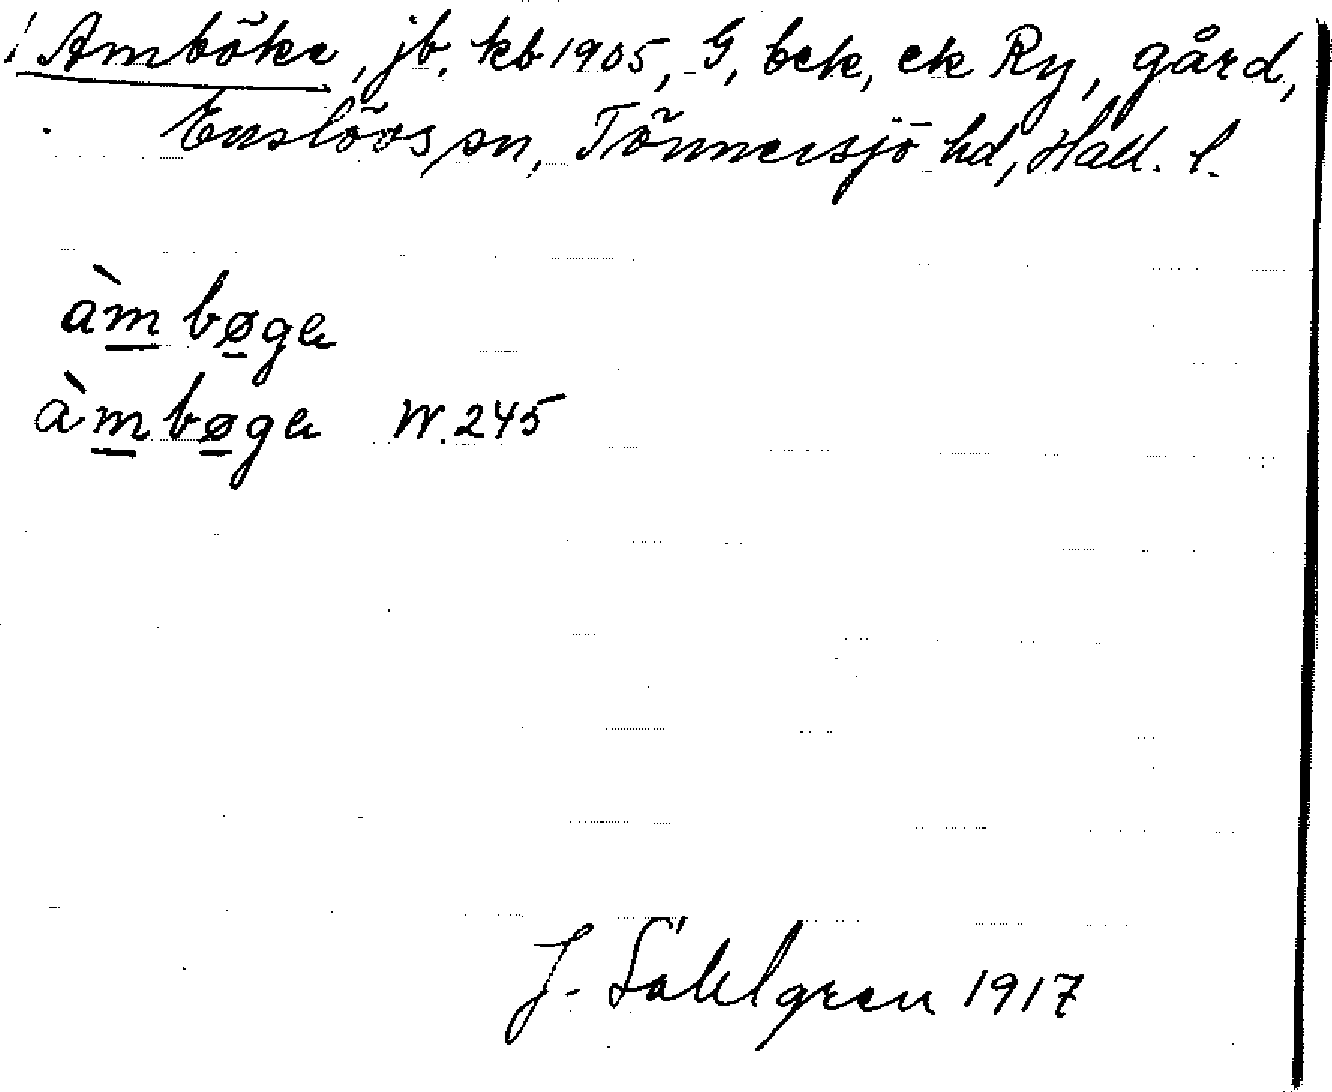 Amböke, jb, kb 1905, G, bek, ek Ry, gård,
Enslövs sn, Tönnersjö hd, Hall. l.
àm bøgɐ
àmbøgɐ W. 245
J. Sahlgren 1917